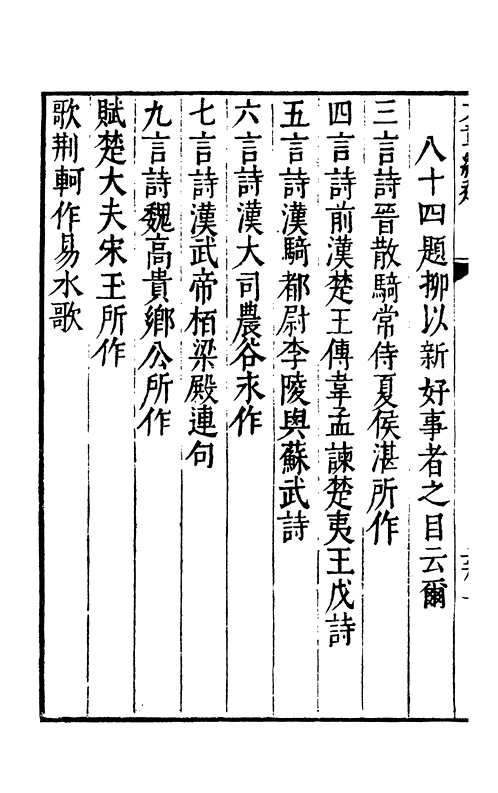 八十四題抑以新好事者之目云爾
三言詩晉散騎常侍夏侯湛所作
四言詩前漢楚王傅韋孟諫楚夷王戊詩
五言詩漢騎都尉李陵與蘇武詩
六言詩漢大司農谷永作
七言詩漢武帝栢梁殿連句
九言詩魏高貴鄉公所作
賦楚大夫宋玉所作
歌荆軻作易水歌